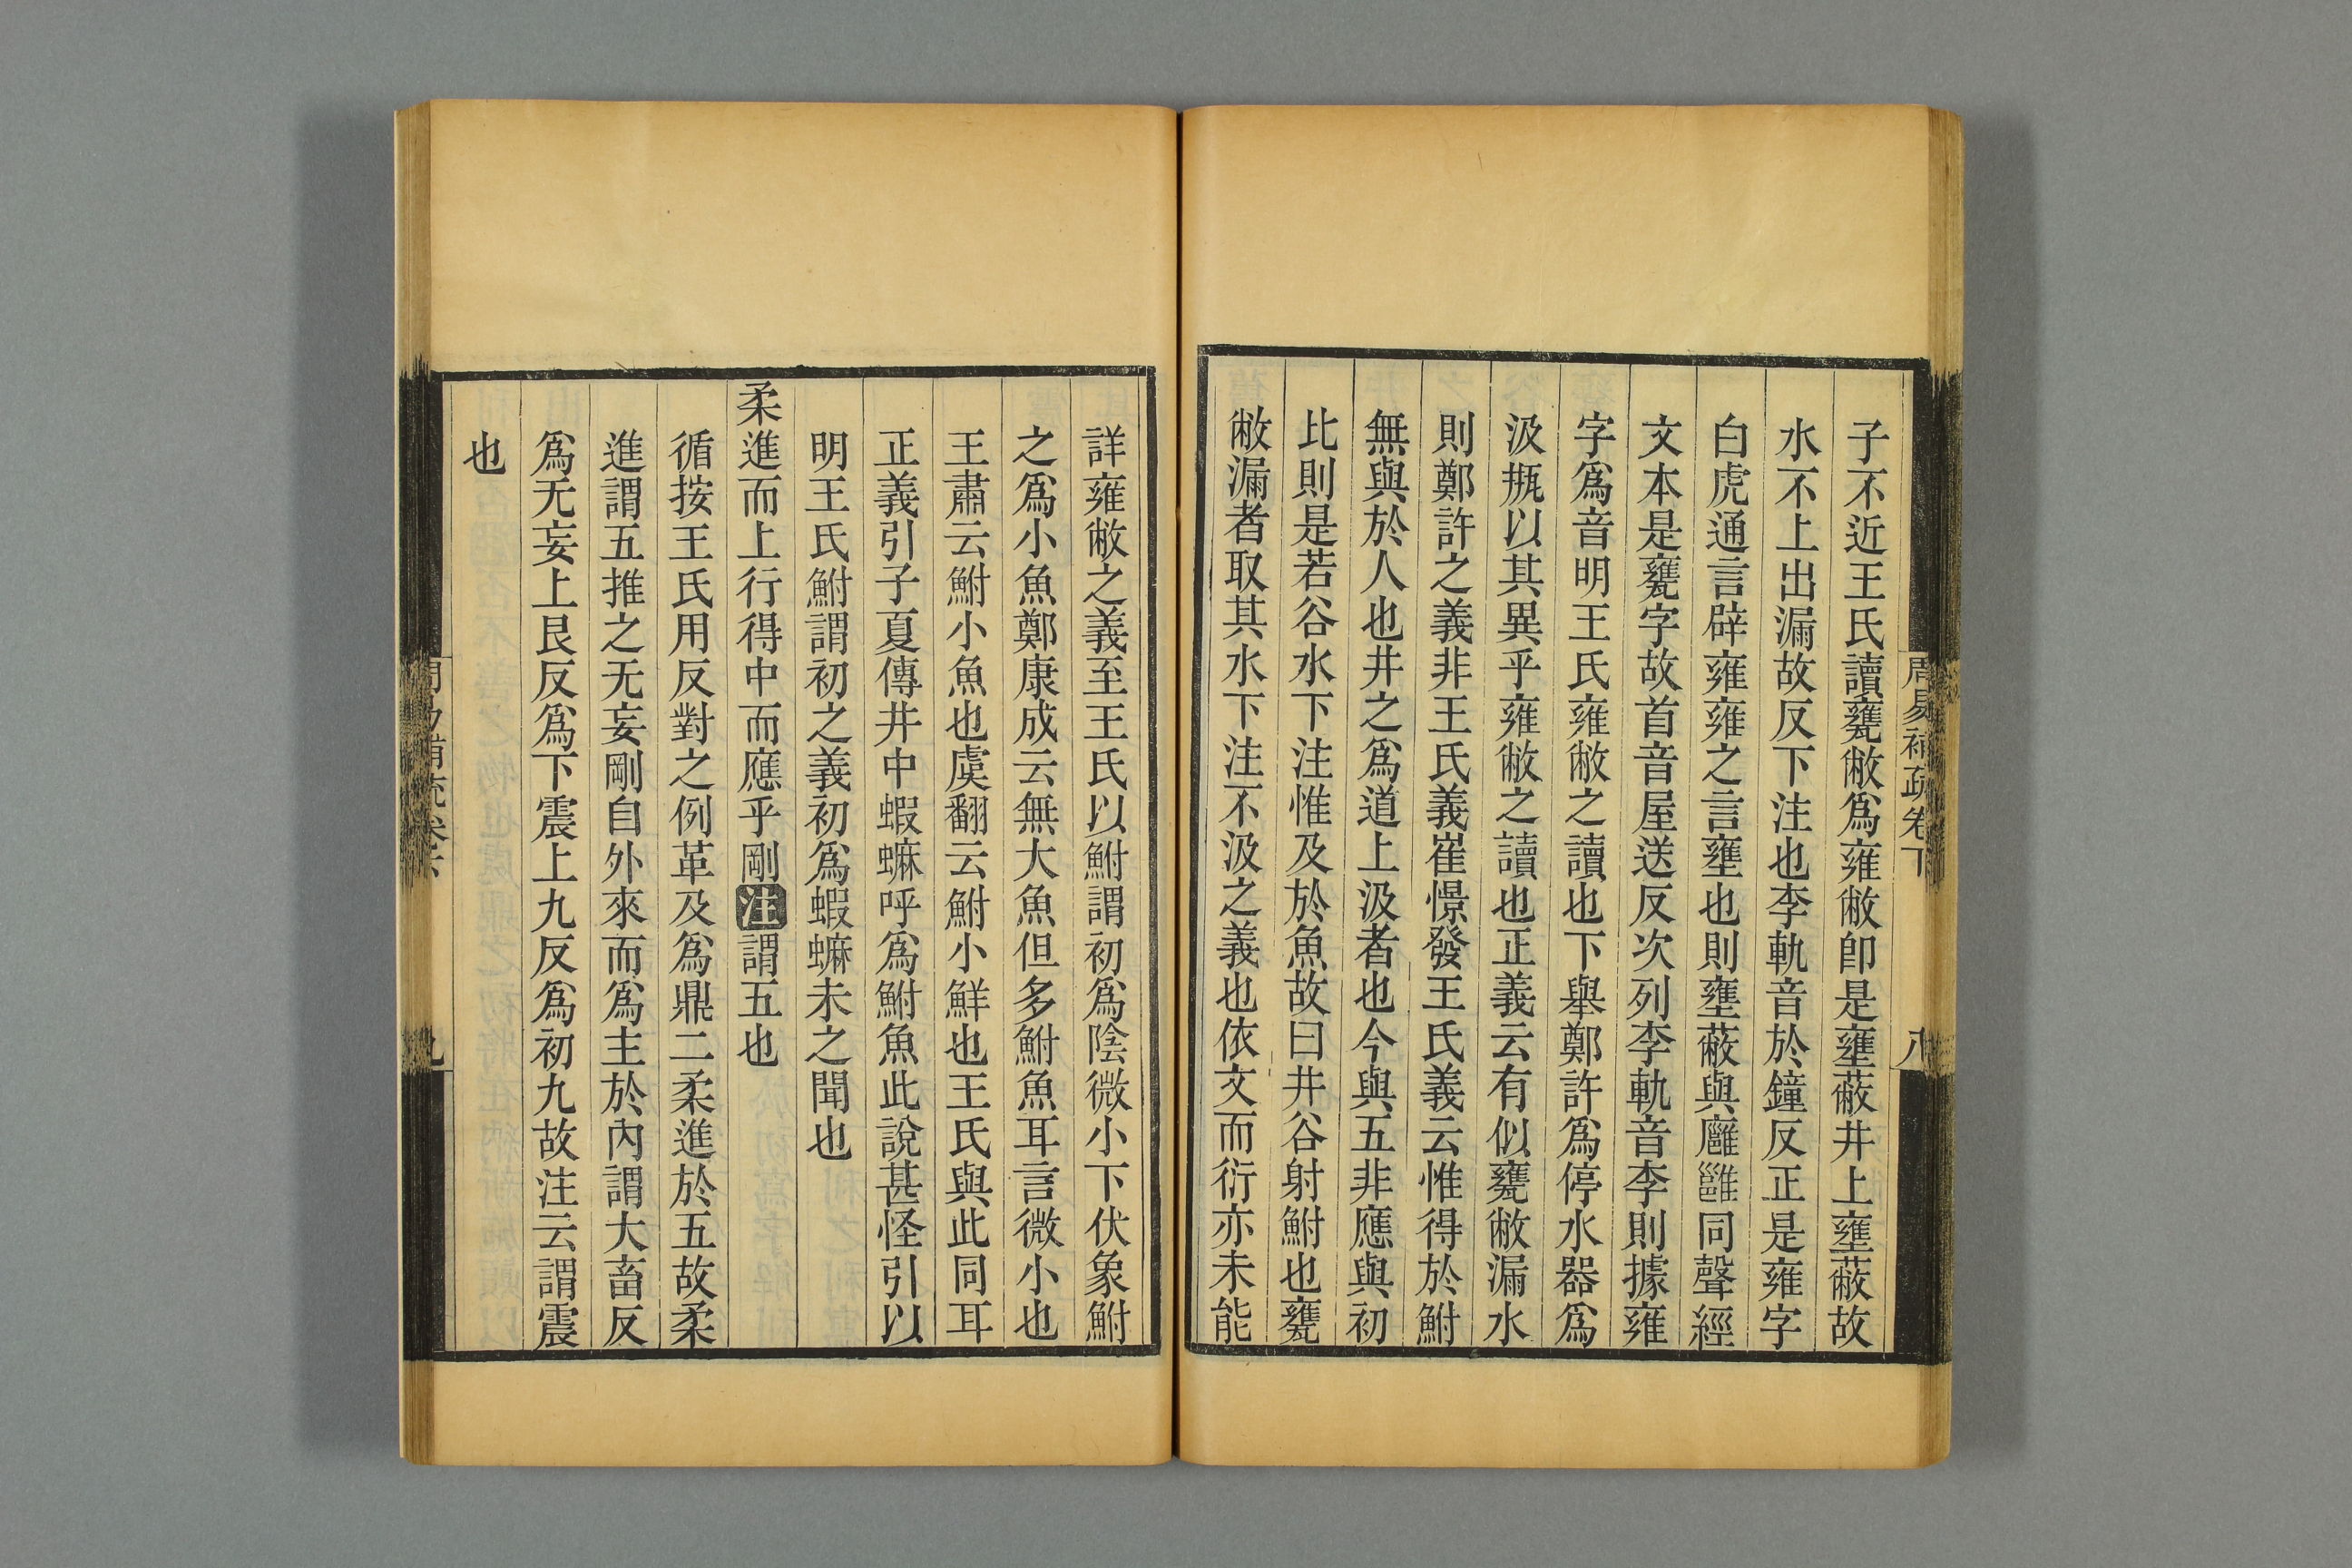 周易補疏卷下
八
子不近王氏讀甕敝爲雍敝卽是壅蔽井上壅蔽故
水不上出漏故反下注也李軌音於鐘反正是雍字
白虎通言辟雍雍之言壅也則壅蔽與廱雝同聲經
文本是甕字故首音屋送反次列李軌音李則據雍
字爲音明王氏雍敝之讀也下舉鄭許爲停水器爲
汲瓶以其異乎雍敝之讀也正義云有似甕敝漏水
則鄭許之義非王氏義崔憬發王氏義云惟得於鮒
無與於人也井之爲道上汲者也今與五非應與初
比則是若谷水下注惟及於魚故曰井谷射鮒也甕
敝漏者取其水下注不汲之義也依文而衍亦未能
詳雍敝之義至王氏以鮒謂初爲陰微小下伏象鮒
之爲小魚鄭康成云無大魚但多鮒魚耳言微小也
王肅云鮒小魚也虞翻云鮒小鮮也王氏與此同耳
正義引子夏傳井中蝦蟆呼爲鮒魚此說甚怪引以
明王氏鮒謂初之義初爲蝦蟆未之聞也
柔進而上行得中而應乎剛注謂五也
循按王氏用反對之例革及爲鼎二柔進於五故柔
進謂五推之无妄剛自外來而爲主於內謂大畜反
爲无妄上艮反爲下震上九反爲初九故注云謂震
也
九